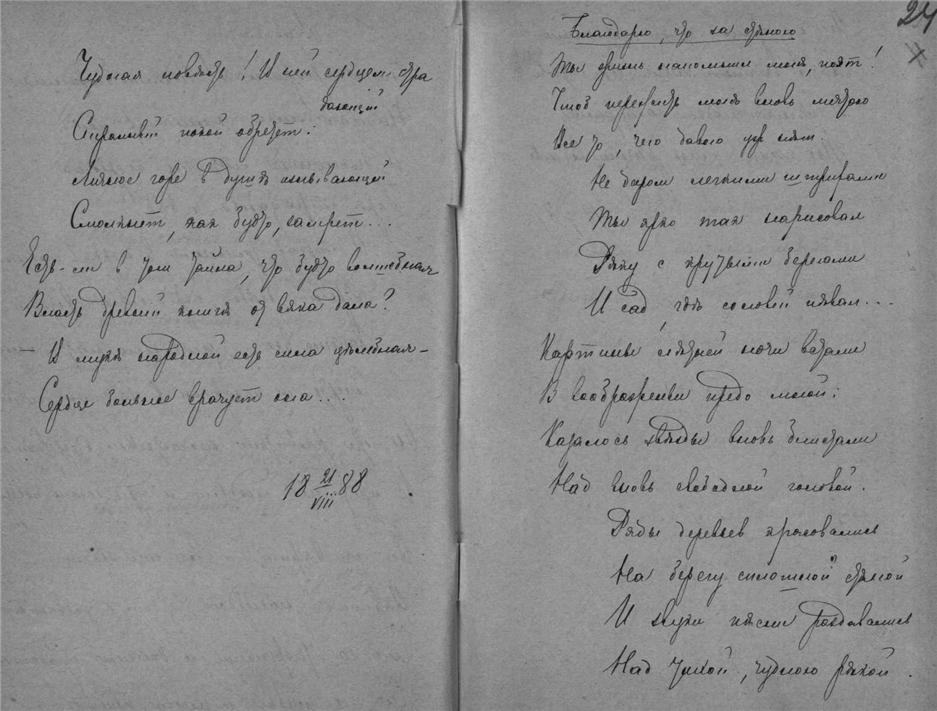 Чудная повѣсть! И ней сердцем стра
дающий
Спромный покой обрѣтет:
Личное горе в душѣ изнывающей
Смолкнет, как будто, замрет...
Есть-ли в том тайна, что будто волшебная
Власть древней книги от вѣка дана?
— И лирѣ народной есть сила цѣлебная —
Сердце больное врачует она...
18 21/VIII 88
24
Благодарю, что за стѣною
Ты жизнь напомнил мнѣ, поэт!
Чтоб пережить мог вновь мечтою
Все то, чего давно уж нѣт.
Не даром легкими штрихами
Ты ярко так нарисовал
Рѣку с крутыми берегами
И сад, гдѣ соловей пѣвал...
Картины лѣтней ночи встали
В воображеньи предо мной:
Казалось звѣзды вновь блистали
Над вновь свободной головой.
Ряды деревьев красовались
На берегу сплошной стѣной
И звуки пѣсни раздавались
Над тихой, чудною рѣкой.